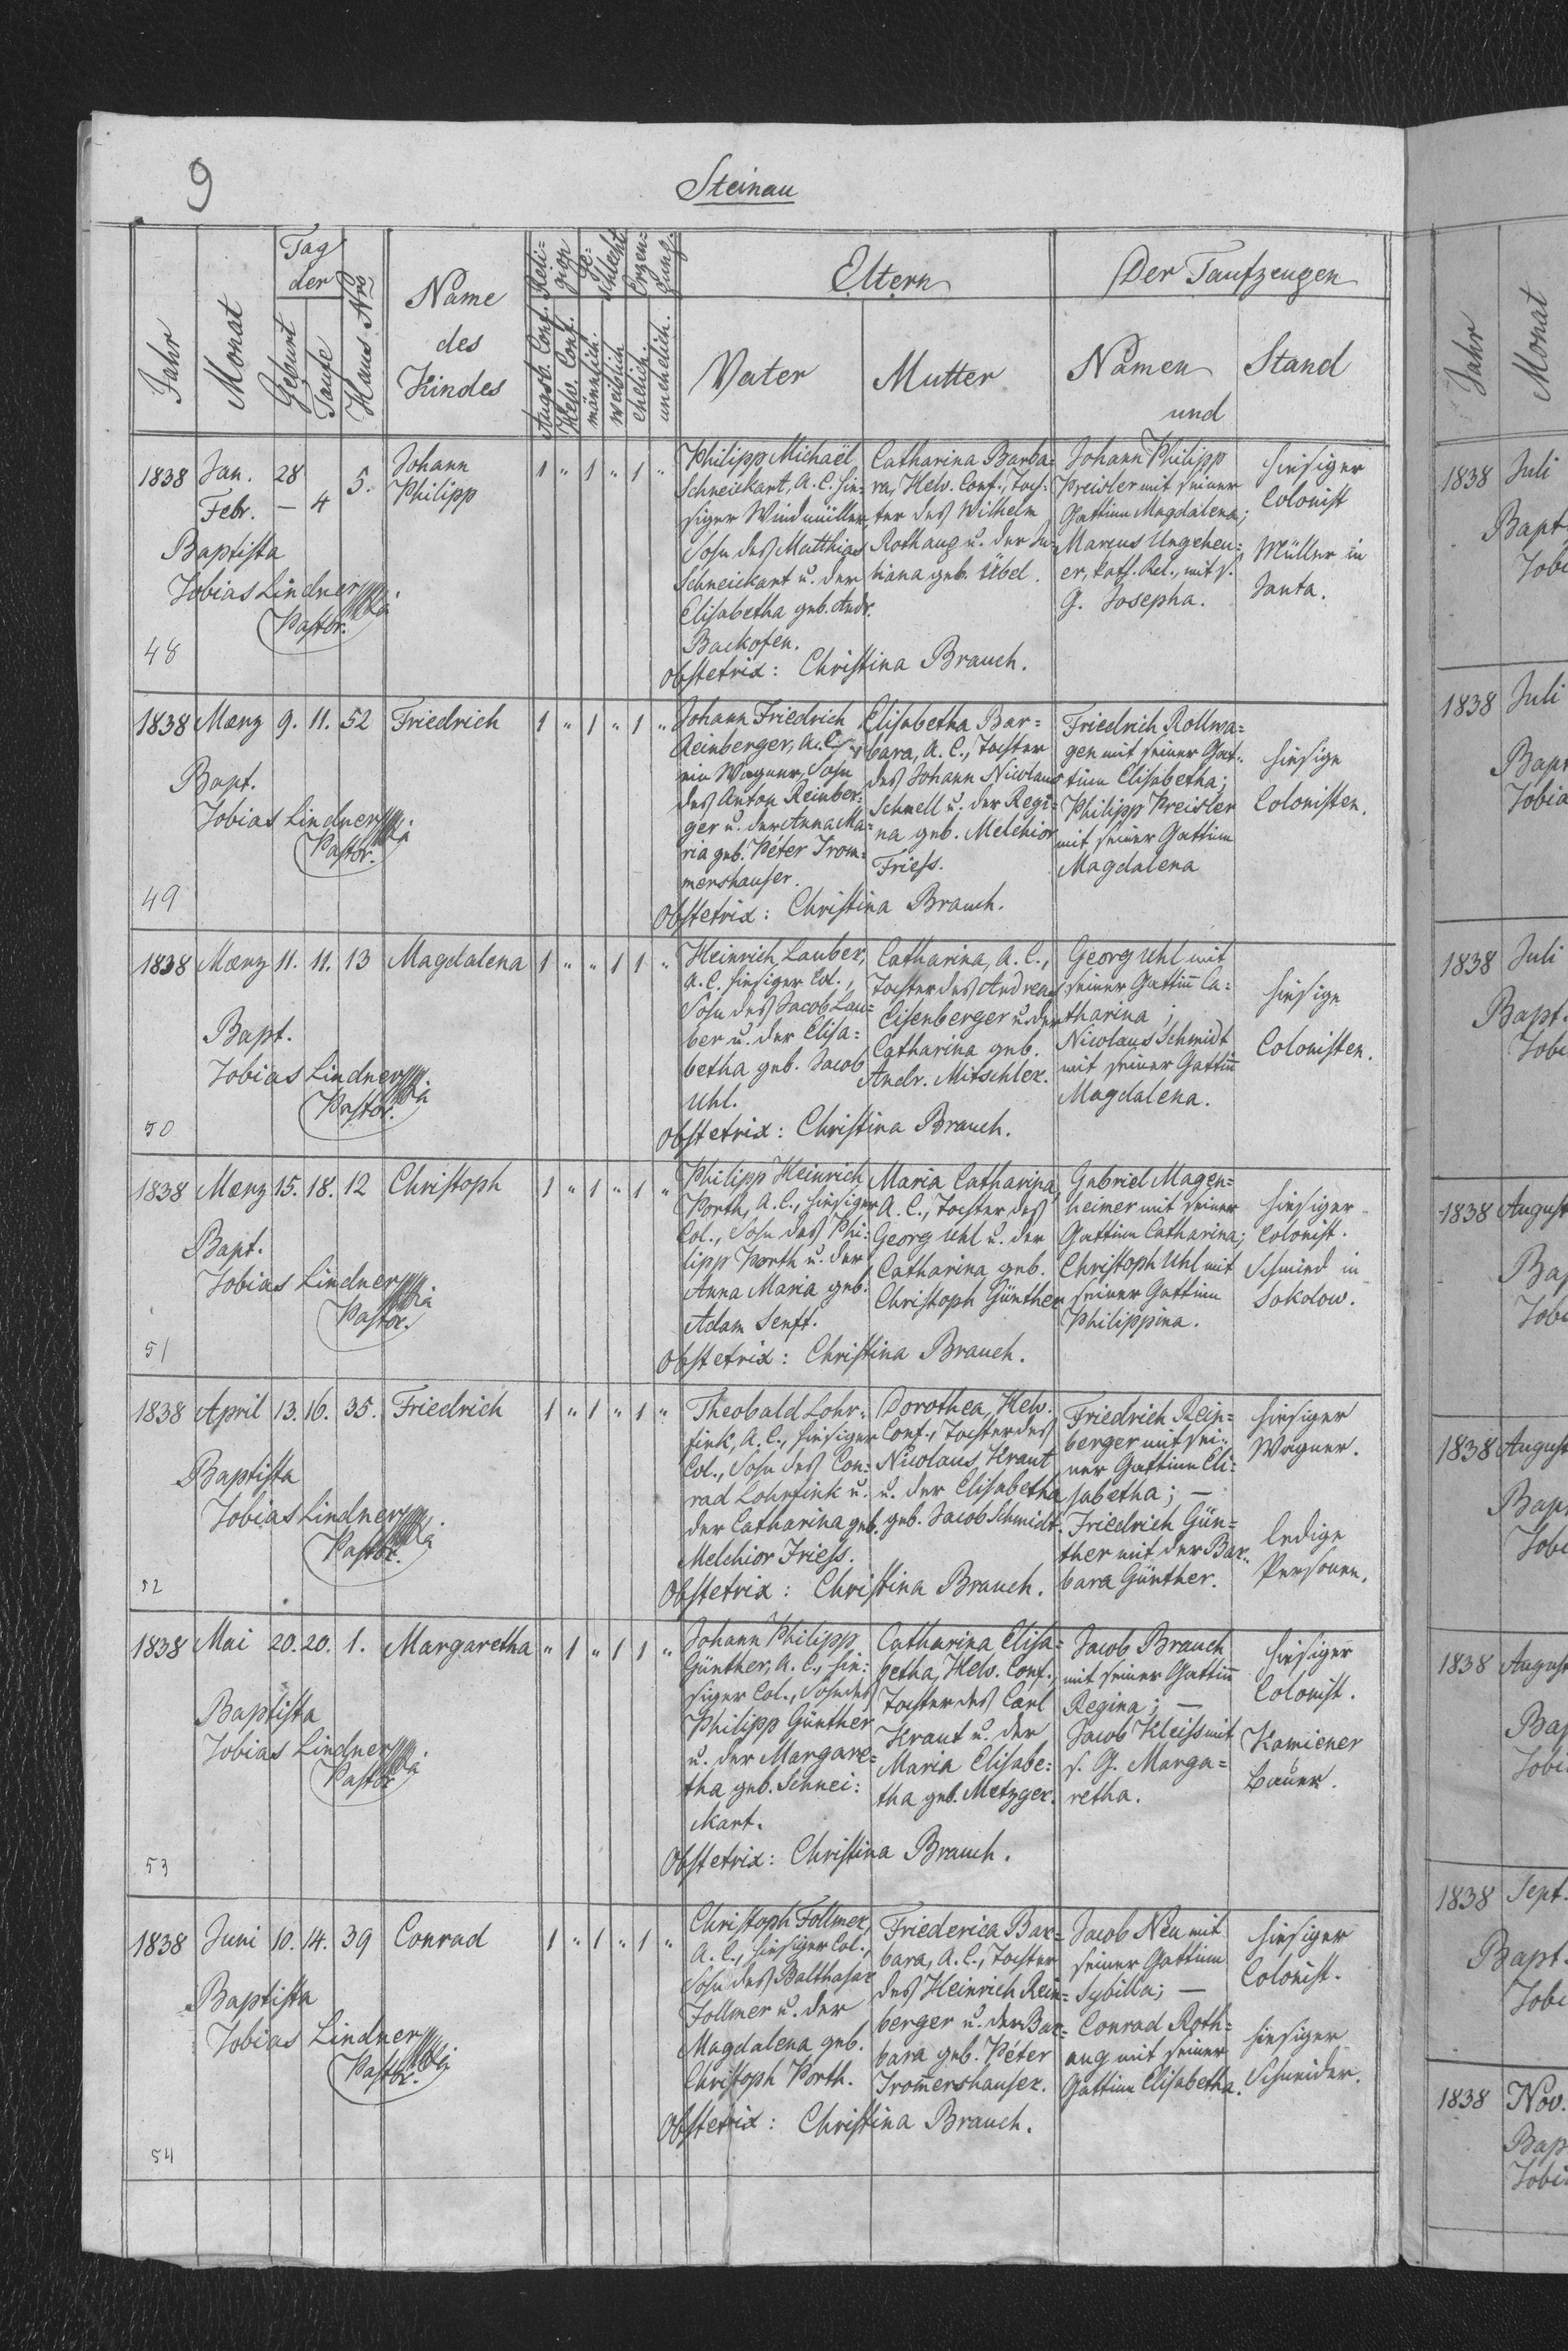 9
Steinau
Jahr
Monat
Tag
der
Geburt
Taufe
Haus Nro
Name
des
Kindes
Reli=
gion
Augsb. Conf.
Helv. Conf.
Ge=
schlecht
männlich.
weiblich
Erzeu=
gung.
ehelich.
unehelich.
Eltern
Vater
Mutter
Der Taufzeugen
Namen
und
Stand
1838 Jan. 28 5. Johann 1 " 1 " 1 "
Febr. — 4 Philipp
Baptista
Tobias Lindner
Pastor.
48
Philipp Michaël
Schneickart, A. C. hie=
siger Windmüller,
Sohn des Matthias
Schneickart u. der
Elisabetha geb. Andr.
Backofen.
Catharina Barba=
ra, Helv. Conf., Toch=
ter des Wilhelm
Rothaug u. der Ju=
liana geb. Übel.
Johann Philipp
Preisler mit seiner
Gattinn Magdalena;
Marcus Ungeheu=
er, kath. Rel., mit s.
G. Josepha.
hiesiger
Colonist
Müller in
Janta.
Obstetrix: Christina Brauch.
1838 Mærz 9. 11. 52 Friedrich 1 " 1 " 1 "
Bapt.
Tobias Lindner
Pastor.
49
Johann Friedrich
Reinberger, A. C.,
ein Wagner, Sohn
des Anton Reinber=
ger u. der Anna Ma=
ria geb. Péter Trom=
mershauser.
Elisabetha Bar=
bara, A. C., Tochter
des Johann Nicolaus
Schnell u. der Regi=
na geb. Melchior
Friess.
Friedrich Rollwa=
gen mit seiner Gat=
tinn Elisabetha;
Philipp Preisler
mit seiner Gattinn
Magdalena
hiesige
Colonisten.
Obstetrix: Christina Brauch.
1838 Mærz 11. 11. 13 Magdalena 1 " " 1 1 "
Bapt.
Tobias Lindner
Pastor.
50
Heinrich Lauber,
A. C. hiesiger Col.,
Sohn des Jacob Lau=
ber u. der Elisa=
betha geb. Jacob
Uhl.
Catharina, A. C.,
Tochter des Andreas
Eisenberger u. der
Catharina geb.
Andr. Mitschler.
Georg Uhl mit
seiner Gattiñ Ca=
tharina;
Nicolaus Schmidt
mit seiner Gattiñ
Magdalena.
hiesige
Colonisten.
Obstetrix: Christina Brauch.
1838 Mærz 15. 18. 12 Christoph 1 " 1 " 1 "
Bapt.
Tobias Lindner
Pastor.
51
Philipp Heinrich
Porth, A. C., hiesiger
Col., Sohn des Phi=
lipp Porth u. der
Anna Maria geb.
Adam Senft.
Maria Catharina,
A. C., Tochter des
Georg Uhl u. der
Catharina geb.
Christoph Günther
Gabriel Magen=
heimer mit seiner
Gattinn Catharina;
Christoph Uhl mit
seiner Gattinn
Philippina.
hiesiger
Colonist.
Schmied in
Sokolow.
Obstetrix: Christina Brauch.
1838 April 13. 16. 35. Friedrich 1 " 1 " 1 "
Baptista
Tobias Lindner
Pastor.
52
Theobald Lohr=
fink, A. C., hiesiger
Col., Sohn des Con=
rad Lohrfink u.
der Catharina geb.
Melchior Friess.
Dorothea, Helv.
Conf., Tochter des
Nicolaus Kraut
u. der Elisabetha
geb. Jacob Schmidt.
Friedrich Rein=
berger mit sei=
ner Gattinn Eli=
sabetha; —
Friedrich Gün=
ther mit der Bar=
bara Günther.
hiesiger
Wagner.
ledige
Personen.
Obstetrix: Christina Brauch.
1838 Mai 20. 20. 1. Margaretha " 1 " 1 1 "
Baptista
Tobias Lindner
Pastor
53
Johann Philipp
Günther, A. C., hie=
siger Col., Sohn des
Philipp Günther
u. der Margare=
tha geb. Schnei=
kart.
Catharina Elisa=
betha, Helv. Conf.,
Tochter des Carl
Kraut u. der
Maria Elisabe=
tha geb. Metzger.
Jacob Brauch
mit seiner Gattiñ
Regina; —
Jacob Kleiss mit
s. G. Marga=
retha.
hiesiger
Colonist.
Kamiener
Bauer.
Obstetrix: Christina Brauch.
1838 Juni 10. 14. 39 Conrad 1 " 1 " 1 "
Baptista
Tobias Lindner
Pastor.
54
Christoph Follmer,
A. C., hiesiger Col.,
Sohn des Balthasar
Follmer u. der
Magdalena geb.
Christoph Porth.
Friederica Bar=
bara, A. C., Tochter
des Heinrich Rein=
berger u. der Bar=
bara geb. Péter
Trom̄ershauser.
Jacob Neu mit
seiner Gattinn
Sybilla; —
Conrad Roth=
aug mit seiner
Gattinn Elisabetha.
hiesiger
Colonist.
hiesiger
Schneider.
Obstetrix: Christina Brauch.
Jahr
Monat
1838 Juli
Bapt
Tobi
1838 Juli
Bapt
Tobia
1838 Juli
Bapt.
Tobi
1838 August
Bap
Tobi
1838 August
Bap
Tobi
1838 August
Bap
Tobi
1838 Sept.
Bapt.
Tobi
1838 Nov.
Bap
Tobi